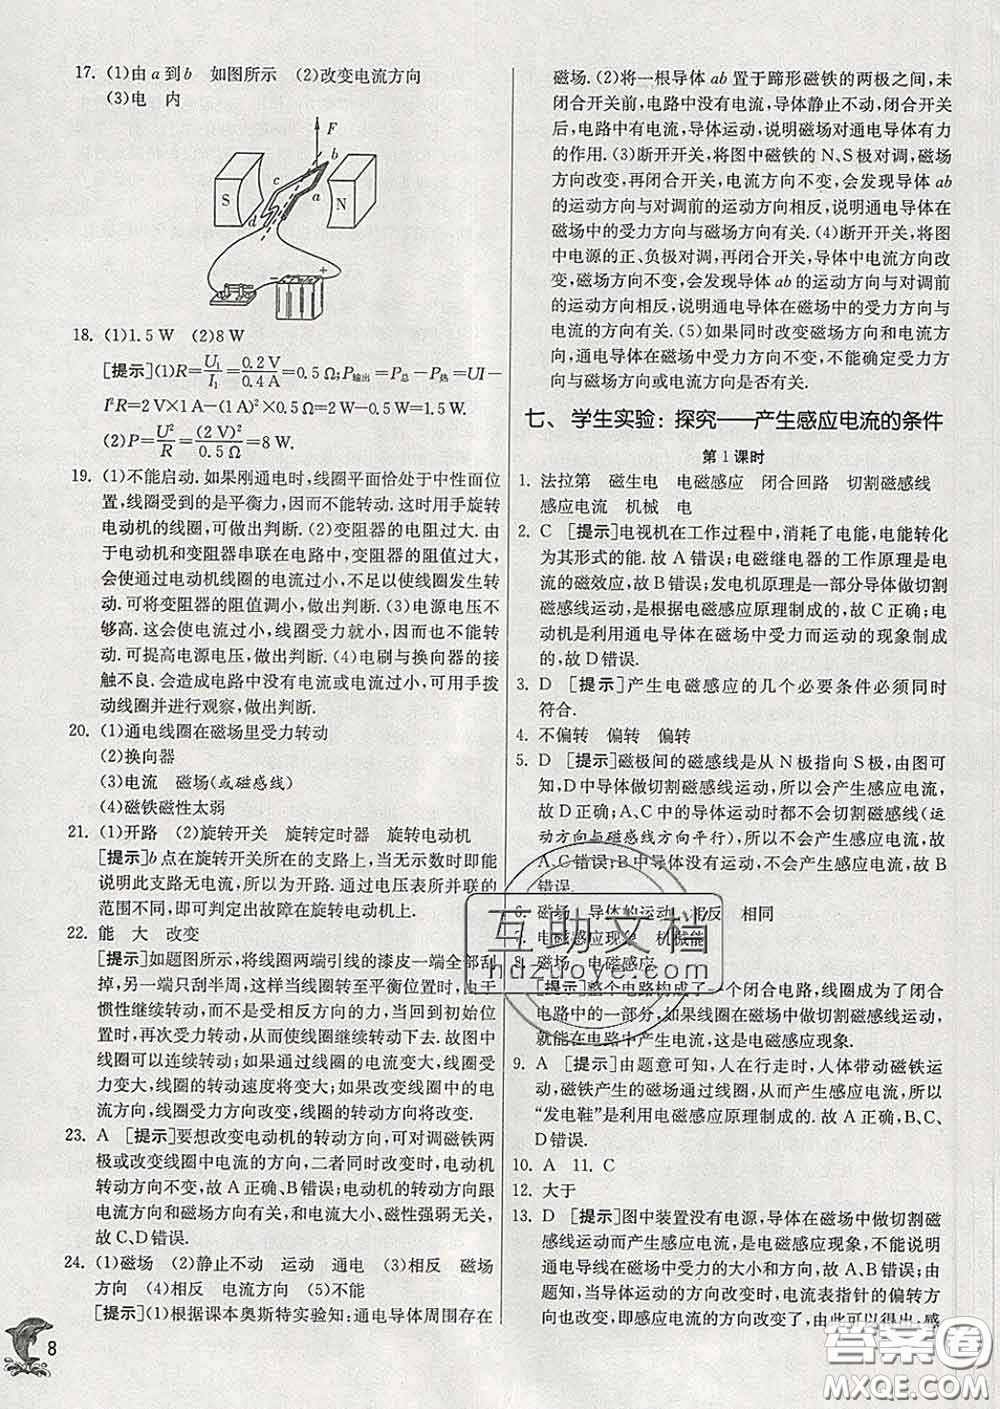 17. (1)由a到b 如图所示 (2)改变电流方向
(3)电 内
F
b
c
S
a
N
d
− +
18. (1)1.5 W (2)8 W
[提示](1)R=U₁/I₁=0.2 V/0.4 A=0.5 Ω;P输出=P总−P热=UI−
I²R=2 V×1 A−(1 A)²×0.5 Ω=2 W−0.5 W=1.5 W.
(2)P=U²/R=(2 V)²/0.5 Ω=8 W.
19. (1)不能启动.如果刚通电时,线圈平面恰处于中性面位
置,线圈受到的是平衡力,因而不能转动.这时用手旋转
电动机的线圈,可做出判断.(2)变阻器的电阻过大.由
于电动机和变阻器串联在电路中,变阻器的阻值过大,
会使通过电动机线圈的电流过小,不足以使线圈发生转
动.可将变阻器的阻值调小,做出判断.(3)电源电压不
够高.这会使电流过小,线圈受力就小,因而也不能转
动.可提高电源电压,做出判断.(4)电刷与换向器的接
触不良.会造成电路中没有电流或电流过小,可用手拨
动线圈并进行观察,做出判断.
20. (1)通电线圈在磁场里受力转动
(2)换向器
(3)电流 磁场(或磁感线)
(4)磁铁磁性太弱
21. (1)开路 (2)旋转开关 旋转定时器 旋转电动机
[提示]b点在旋转开关所在的支路上,当无示数时即能
说明此支路无电流,所以为开路.通过电压表所并联的
范围不同,即可判定出故障在旋转电动机上.
22. 能 大 改变
[提示]如题图所示,将线圈两端引线的漆皮一端全部刮
掉,另一端只刮半周,这样当线圈转至平衡位置时,由于
惯性继续转动,而不是受相反方向的力,当回到初始位
置时,再次受力转动,使线圈继续转动下去.故图中
线圈可以连续转动;如果通过线圈的电流变大,线圈受
力变大,线圈的转动速度将变大;如果改变线圈中的电
流方向,线圈受力方向改变,线圈的转动方向将改变.
23. A [提示]要想改变电动机的转动方向,可对调磁铁两
极或改变线圈中电流的方向,二者同时改变时,电动机
转动方向不变,故A、B错误;电动机的转动方向跟
电流方向和磁场方向有关,和电流大小、磁性强弱无关,
故C、D错误.
24. (1)磁场 (2)静止不动 运动 通电 (3)相反 磁场
方向 (4)相反 电流方向 (5)不能
[提示](1)根据课本奥斯特实验知:通电导体周围存在
8
磁场.(2)将一根导体ab置于蹄形磁铁的两极之间,未
闭合开关前,电路中没有电流,导体静止不动,闭合开关
后,电路中有电流,导体运动,说明磁场对通电导体有力
的作用.(3)断开开关,将图中磁铁的N、S极对调,磁场
方向改变,再闭合开关,电流方向不变,会发现导体ab
的运动方向与对调前的运动方向相反,说明通电导体在
磁场中的受力方向与磁场方向有关.(4)断开开关,将图
中电源的正、负极对调,再闭合开关,导体中电流方向改
变,磁场方向不变,会发现导体ab的运动方向与对调前
的运动方向相反,说明通电导体在磁场中的受力方向与
电流的方向有关.(5)如果同时改变磁场方向和电流方
向,通电导体在磁场中受力方向不变,不能确定受力方
向与磁场方向或电流方向是否有关.
七、学生实验：探究——产生感应电流的条件
第1课时
1. 法拉第 磁生电 电磁感应 闭合回路 切割磁感线
感应电流 机械 电
2. C [提示]电视机在工作过程中,消耗了电能,电能转化
为其形式的能.故A错误;电磁继电器的工作原理是电
流的磁效应,故B错误;发电机原理是一部分导体做切割
磁感线运动,是根据电磁感应原理制成的,故C正确;电
动机是利用通电导体在磁场中受力而运动的现象制成
的,故D错误.
3. D [提示]产生电磁感应的几个必要条件必须同时
符合.
4. 不偏转 偏转 偏转
5. D [提示]磁极间的磁感线是从N极指向S极,由图可
知,D中导体做切割磁感线运动,所以会产生感应电流,
故D正确;A、C中的导体运动时都不会切割磁感线(运
动方向与磁感线方向平行),所以不会产生感应电流,故
A、C错误;B中导体没有运动,不会产生感应电流,故B
错误.
6. 磁场 导体的运动 相反 相同
7. 电磁感应现象 机械能
8. 磁场 电磁感应
[提示]整个电路构成了一个闭合电路,线圈成为了闭合
电路中的一部分,如果线圈在磁场中做切割磁感线运动,
就能在电路中产生电流,这是电磁感应现象.
9. A [提示]由题意可知,人在行走时,人体带动磁铁运
动,磁铁产生的磁场通过线圈,从而产生感应电流,所以
“发电鞋”是利用电磁感应原理制成的.故A正确,B、C、
D错误.
10. A 11. C
12. 大于
13. D [提示]图中装置没有电源,导体在磁场中做切割磁
感线运动而产生感应电流,是电磁感应现象,不能说明
通电导线在磁场中受到力的大小和方向,故A错误;由
题知,当导体的运动方向改变时,电流表指针的偏转方
向也改变,即感应电流的方向改变了,由此可以得出,感
互助文档
hdzuoye.com
答案圈
MXQE.COM